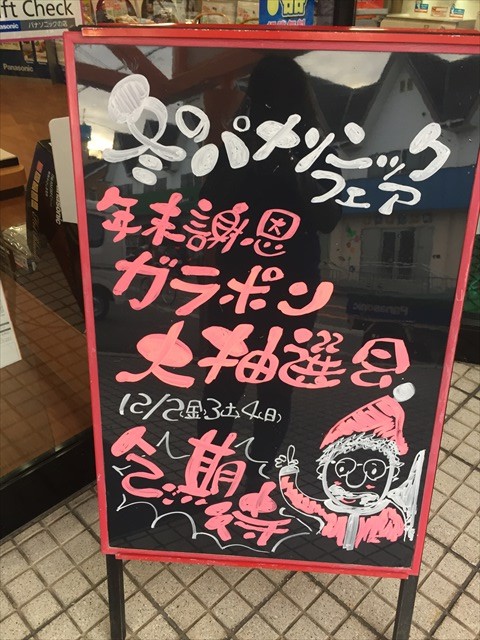 ft Check
Panasonic パナソニックの店
Panasonic
冬のパナソニック
フェア
年末謝恩
ガラポン
大抽選会
12/2(金)3(土)4(日)
ご期待